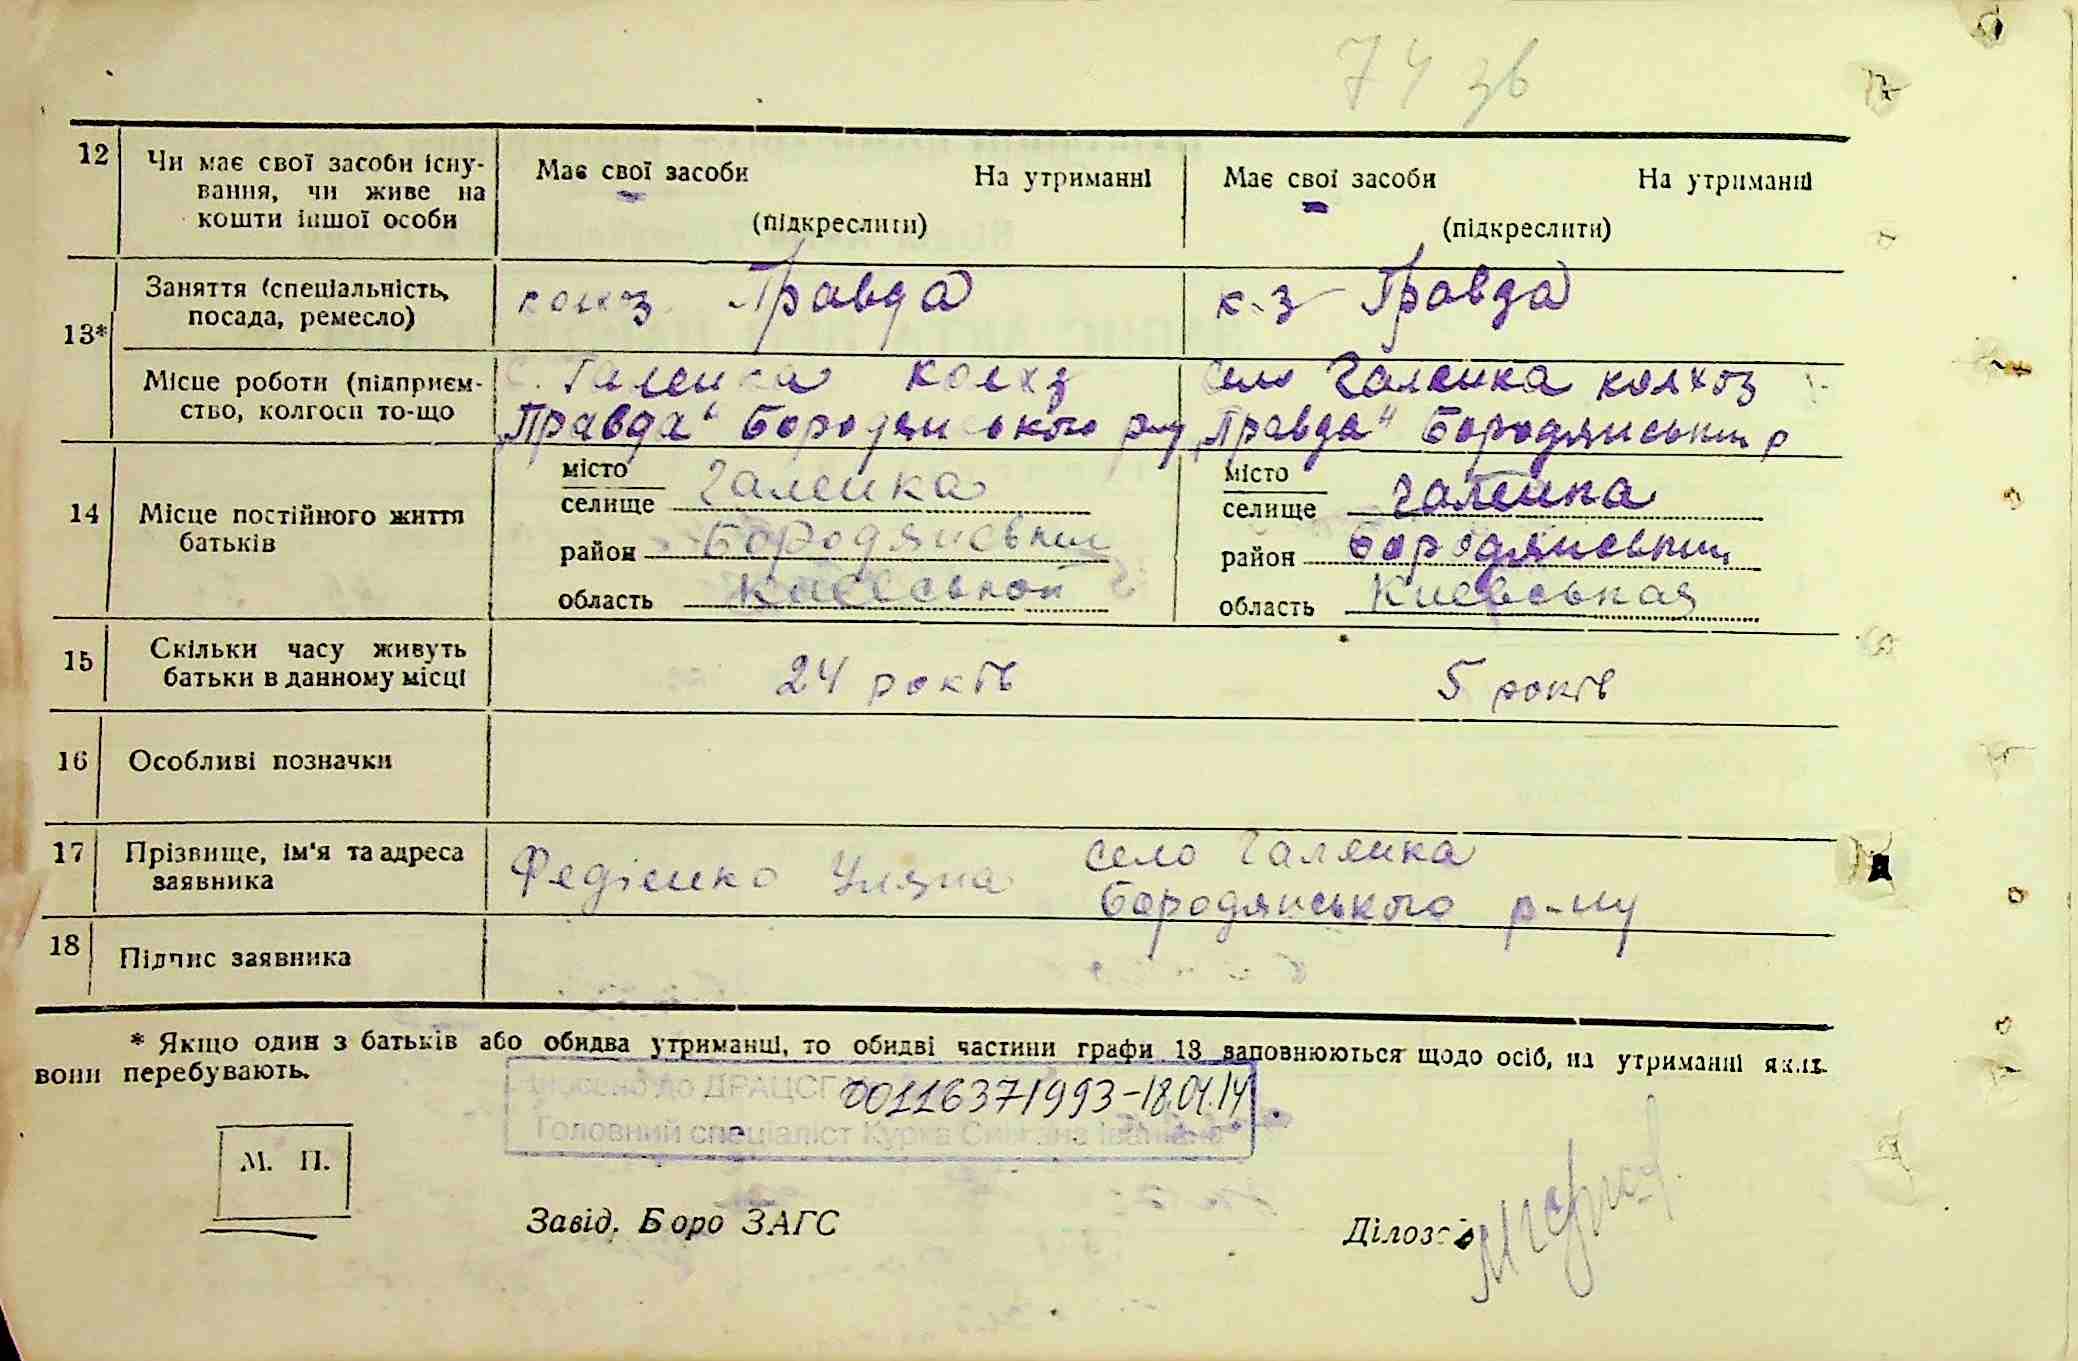 74 зв
12 Чи має свої засоби існу-
вання, чи живе на
кошти іншої особи
Має свої засоби На утриманні
(підкреслити)
Має свої засоби На утриманні
(підкреслити)
13*
Заняття (спеціальність,
посада, ремесло)
колхз Правда
к-з Правда
Місце роботи (підприєм-
ство, колгосп то-що
с. Галенка колхз
„Правда“ Бородянського р-ну
село Галенка колхоз
„Правда“ Бородянський р
14 Місце постійного життя
батьків
місто
селище Галенка
район Бородянський
область
місто
селище Галенка
район Бородянський
область Киевськая
15 Скільки часу живуть
батьки в данному місці
24 років
5 років
16 Особливі позначки
17 Прізвище, ім'я та адреса
заявника
Федієнко Уляна село Галенка
Бородянського р-ну
18 Підпис заявника
* Якщо один з батьків або обидва утриманці, то обидві частини графи 13 заповнюються щодо осіб, на утриманні яких
вони перебувають.
Внесено до ДРАЦСГ 00116371993-18.04.14
Головний спеціаліст Курка Світлана Іванівна
М. П.
Завід. Бюро ЗАГС
Діловод